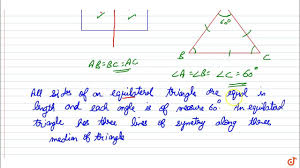 60°
B C
AB=BC=AC
∠A=∠B=∠C=60°
All sides of an equilateral triangle are equal in
length and each angle is of measure 60°. An equilateral
triangle has three lines of symetry along three
median of triangle